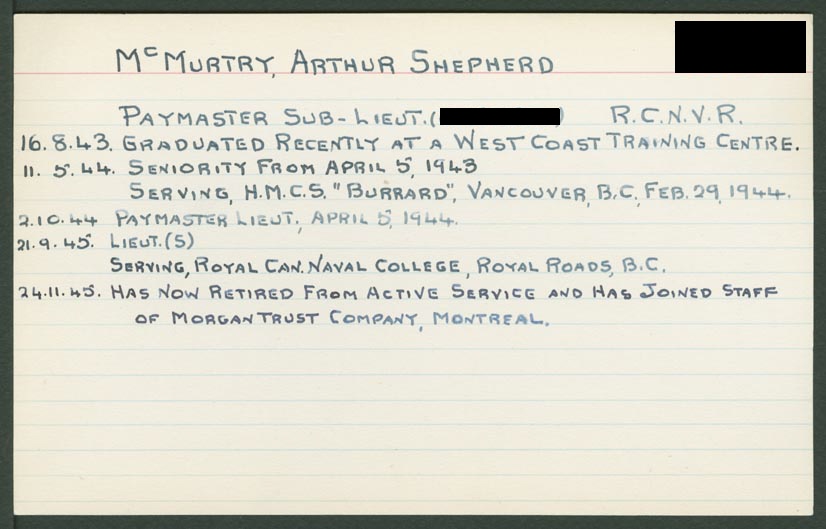 McMURTRY, ARTHUR SHEPHERD
PAYMASTER SUB-LIEUT. ( ) R.C.N.V.R.
16.8.43. GRADUATED RECENTLY AT A WEST COAST TRAINING CENTRE.
11.5.44. SENIORITY FROM APRIL 5, 1943
SERVING, H.M.C.S. "BURRARD", VANCOUVER, B.C, FEB. 29, 1944.
2.10.44 PAYMASTER LIEUT., APRIL 5, 1944.
21.9.45. LIEUT.(S)
SERVING, ROYAL CAN. NAVAL COLLEGE, ROYAL ROADS, B.C.
24.11.45. HAS NOW RETIRED FROM ACTIVE SERVICE AND HAS JOINED STAFF
OF MORGAN TRUST COMPANY, MONTREAL.